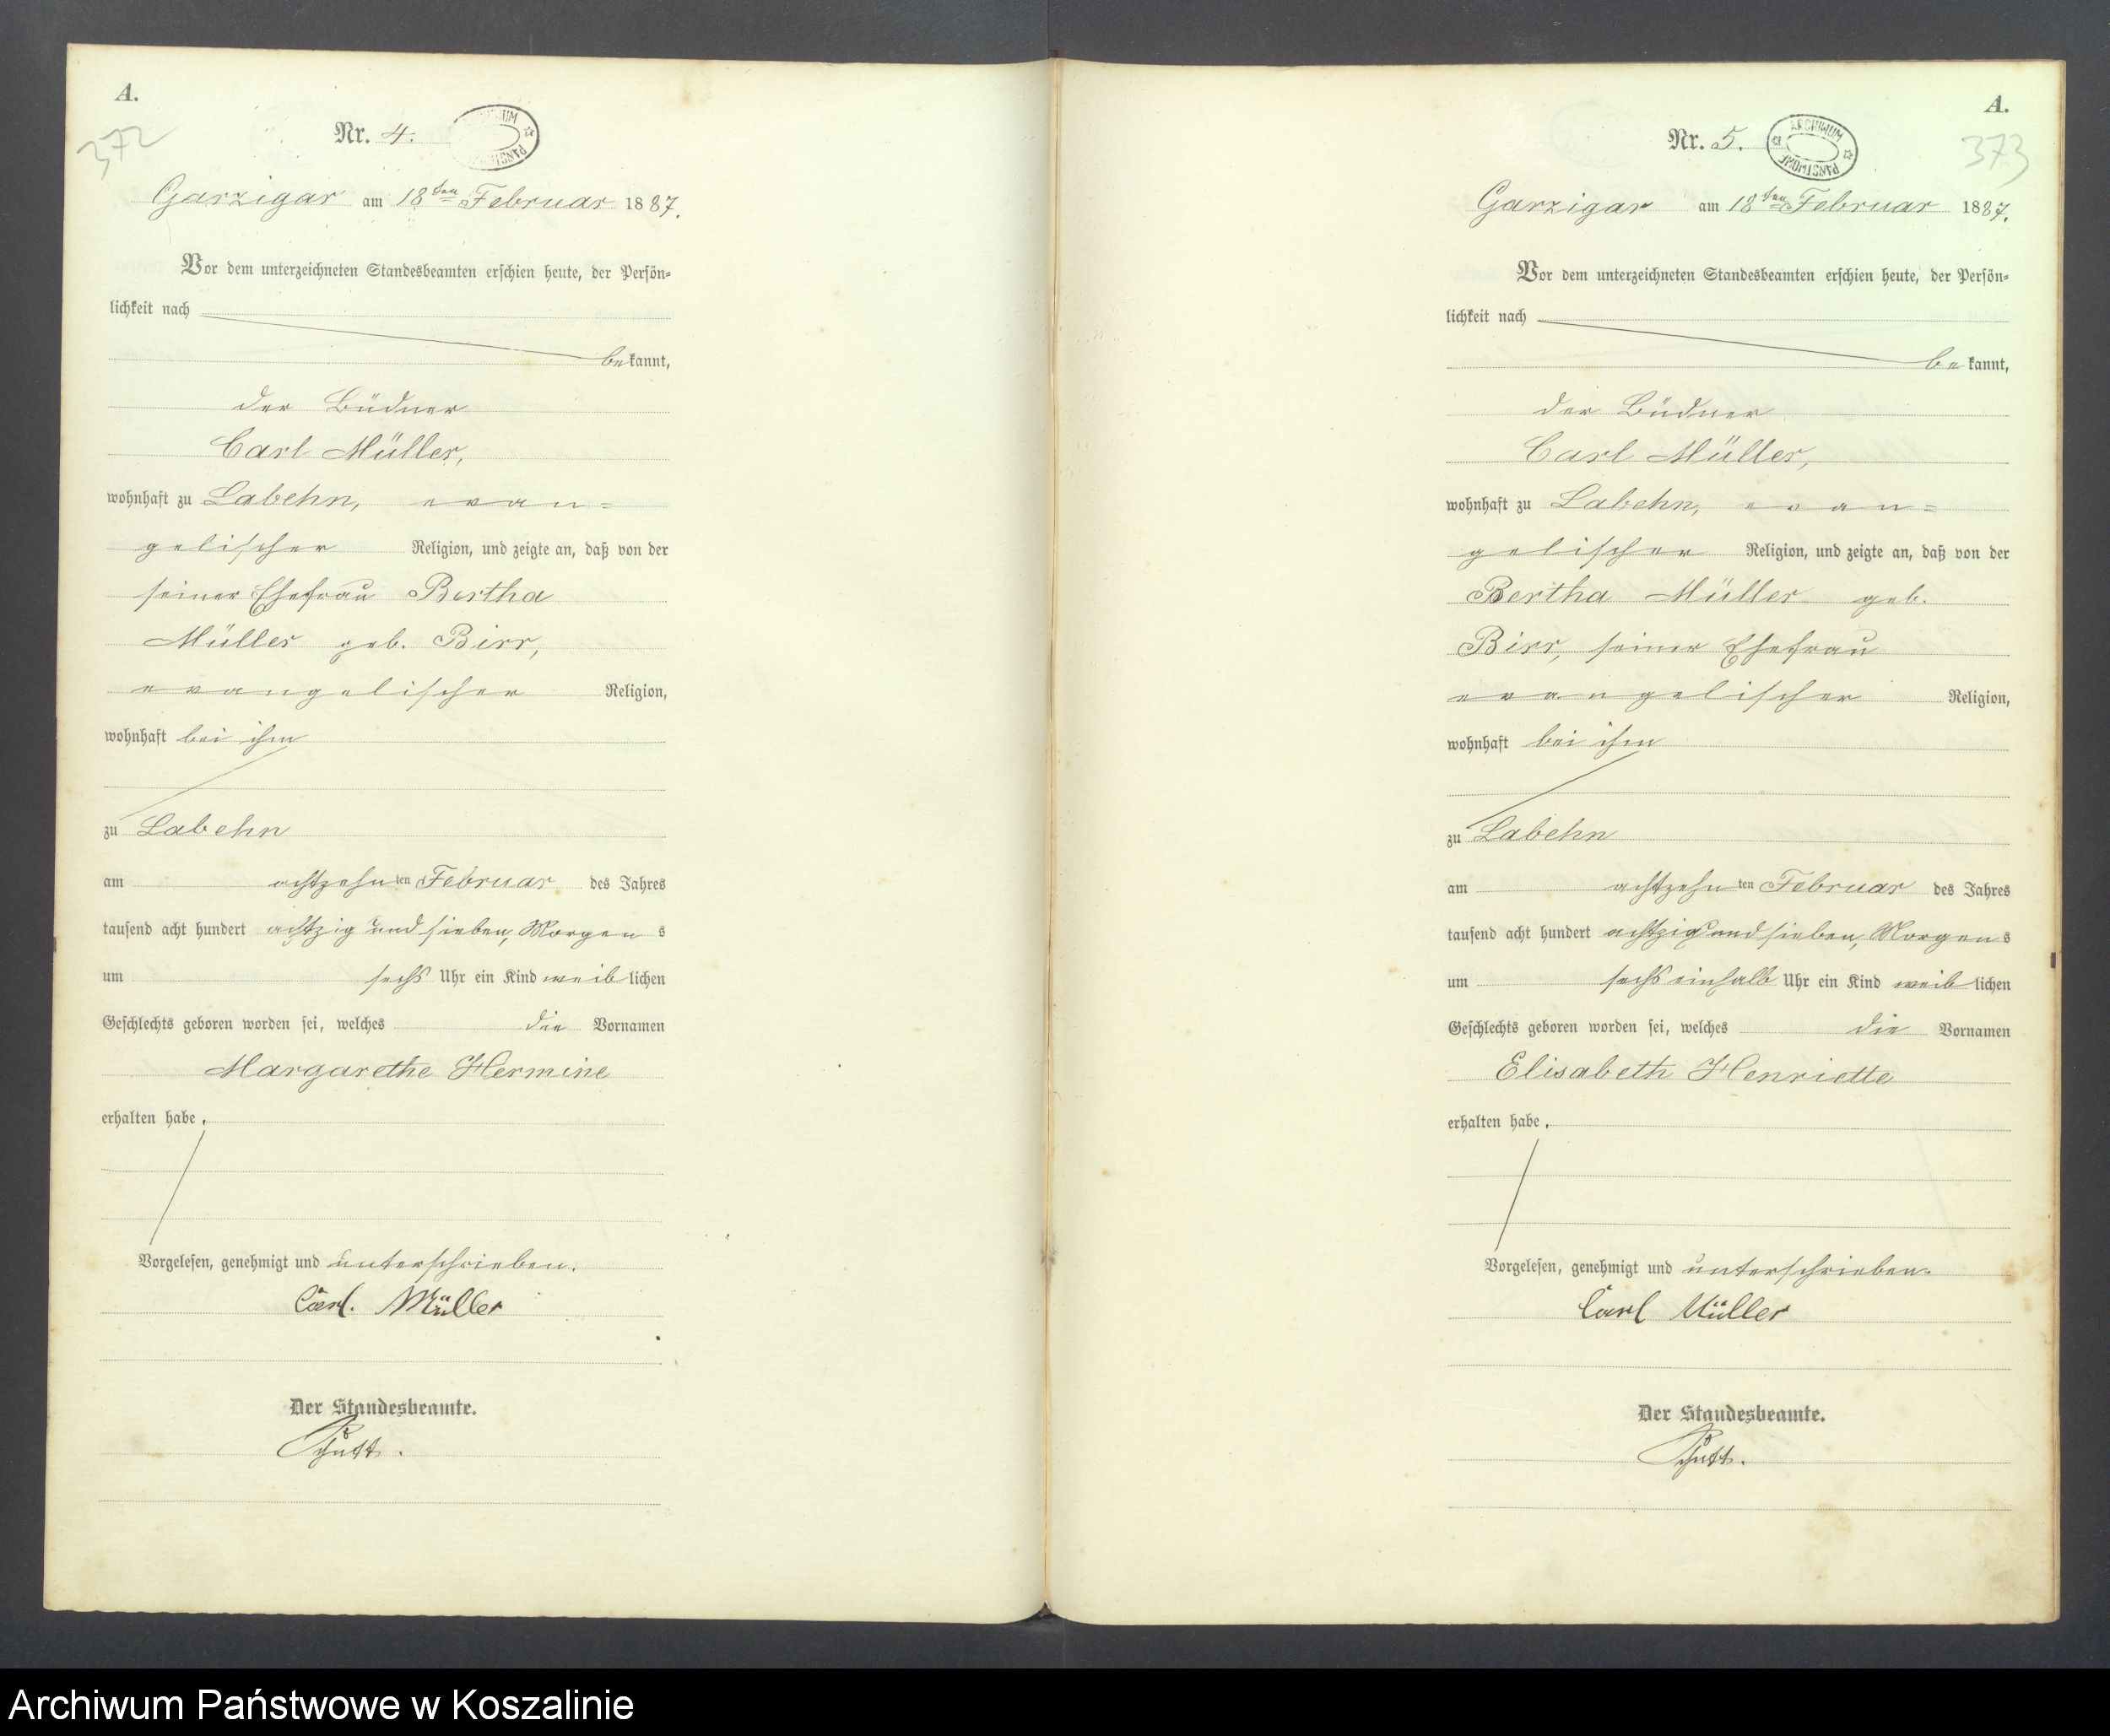 A.
372
Nr. 4.
ARCHIWUM PAŃSTWOWE
Garzigar am 18ten Februar 1887.
Vor dem unterzeichneten Standesbeamten erschien heute, der Persön-
lichkeit nach
bekannt,
der Büdner
Carl Müller,
wohnhaft zu Labehn, evan=
gelischer Religion, und zeigte an, daß von der
seiner Ehefrau Bertha
Müller geb. Birr,
evangelischer Religion,
wohnhaft bei ihm
zu Labehn
am achtzehnten Februar des Jahres
tausend acht hundert achtzig und sieben, Morgens
um sechs Uhr ein Kind weiblichen
Geschlechts geboren worden sei, welches die Vornamen
Margarethe Hermine
erhalten habe.
Vorgelesen, genehmigt und unterschrieben.
Carl. Müller
Der Standesbeamte.
A.
373
Nr. 5.
ARCHIWUM PAŃSTWOWE
Garzigar am 18ten Februar 1887.
Vor dem unterzeichneten Standesbeamten erschien heute, der Persön-
lichkeit nach
bekannt,
der Büdner
Carl Müller,
wohnhaft zu Labehn, evan=
gelischer Religion, und zeigte an, daß von der
Bertha Müller geb.
Birr, seiner Ehefrau
evangelischer Religion,
wohnhaft bei ihm
zu Labehn
am achtzehnten Februar des Jahres
tausend acht hundert achtzig und sieben, Morgens
um sechs einhalb Uhr ein Kind weiblichen
Geschlechts geboren worden sei, welches die Vornamen
Elisabeth Henriette
erhalten habe.
Vorgelesen, genehmigt und unterschrieben.
Carl Müller
Der Standesbeamte.
Archiwum Państwowe w Koszalinie